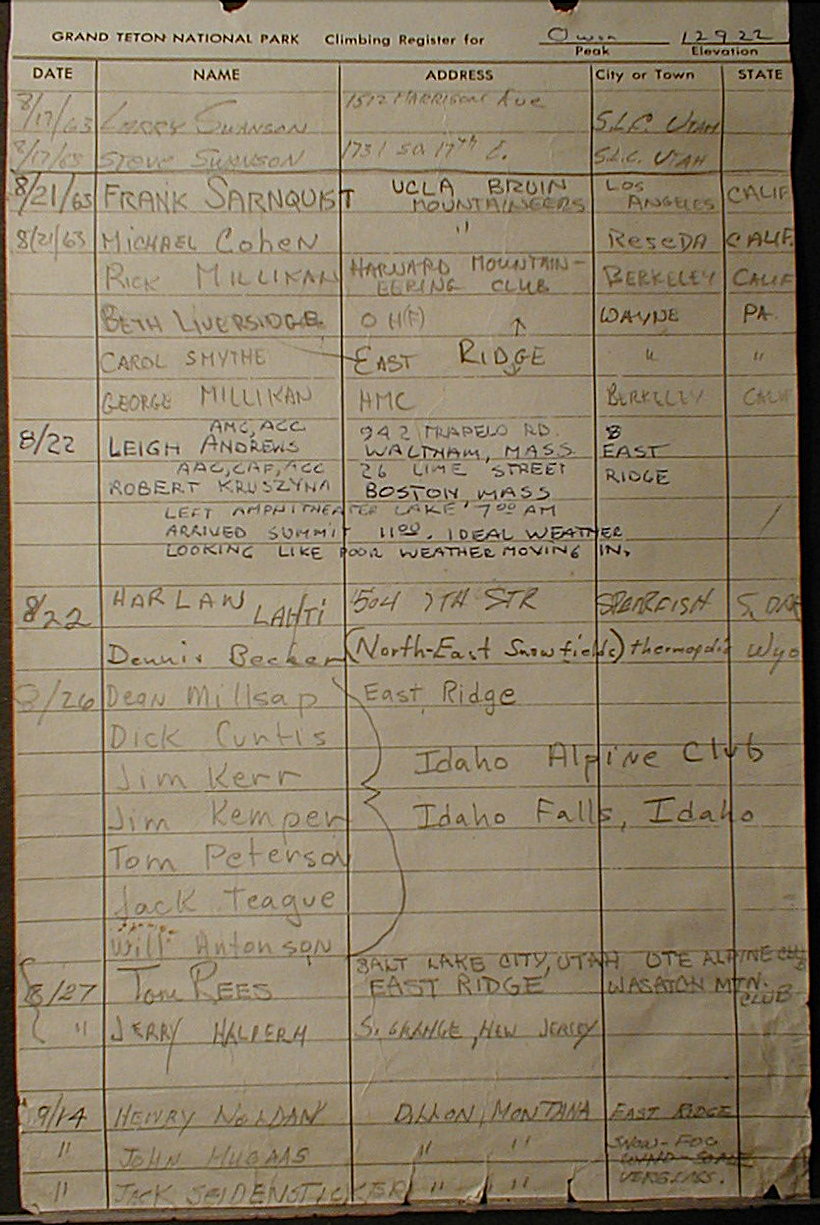 GRAND TETON NATIONAL PARK Climbing Register for Owen 12922
Peak Elevation
DATE NAME ADDRESS City or Town STATE
8/17/63 Larry Swanson 1512 Harrison Ave S.L.C. Utah
8/17/63 Steve Swanson 1731 So 17th E. S.L.C. Utah
8/21/63 Frank Sarnquist UCLA Bruin Mountaineers Los Angeles Calif
8/21/63 Michael Cohen " Reseda Calif.
Rick Millikan Harvard Mountain-eering Club Berkeley Calif
Beth Liversidge O H(F) Wayne Pa.
Carol Smythe East Ridge " "
George Millikan HMC Berkeley Calif
AMC, ACC 942 Trapelo Rd.
8/22 Leigh Andrews Waltham, Mass. East
AAC, CAF, ACC 26 Lime Street Ridge
Robert Kruszyna Boston, Mass
Left Amphitheater Lake 7:00 AM
Arrived summit 11:00. Ideal weather
Looking like poor weather moving in.
8/22 Harlan Lahti 504 7th Str Spearfish S. Dak
Dennis Becker (North-East Snowfields) Thermopolis Wyo
8/26 Dean Millsap East Ridge
Dick Curtis
Jim Kerr Idaho Alpine Club
Jim Kemper Idaho Falls, Idaho
Tom Peterson
Jack Teague
Will Antonson
Salt Lake City, Utah Ute Alpine Club
8/27 Tom Rees East Ridge Wasatch Mtn. Club
" Jerry Halpern S. Orange, New Jersey
9/14 Henry Noldan Dillon, Montana East Ridge
" John Hugaas " " Snow-Fog
" Jack Seidensticker " " Verglass.